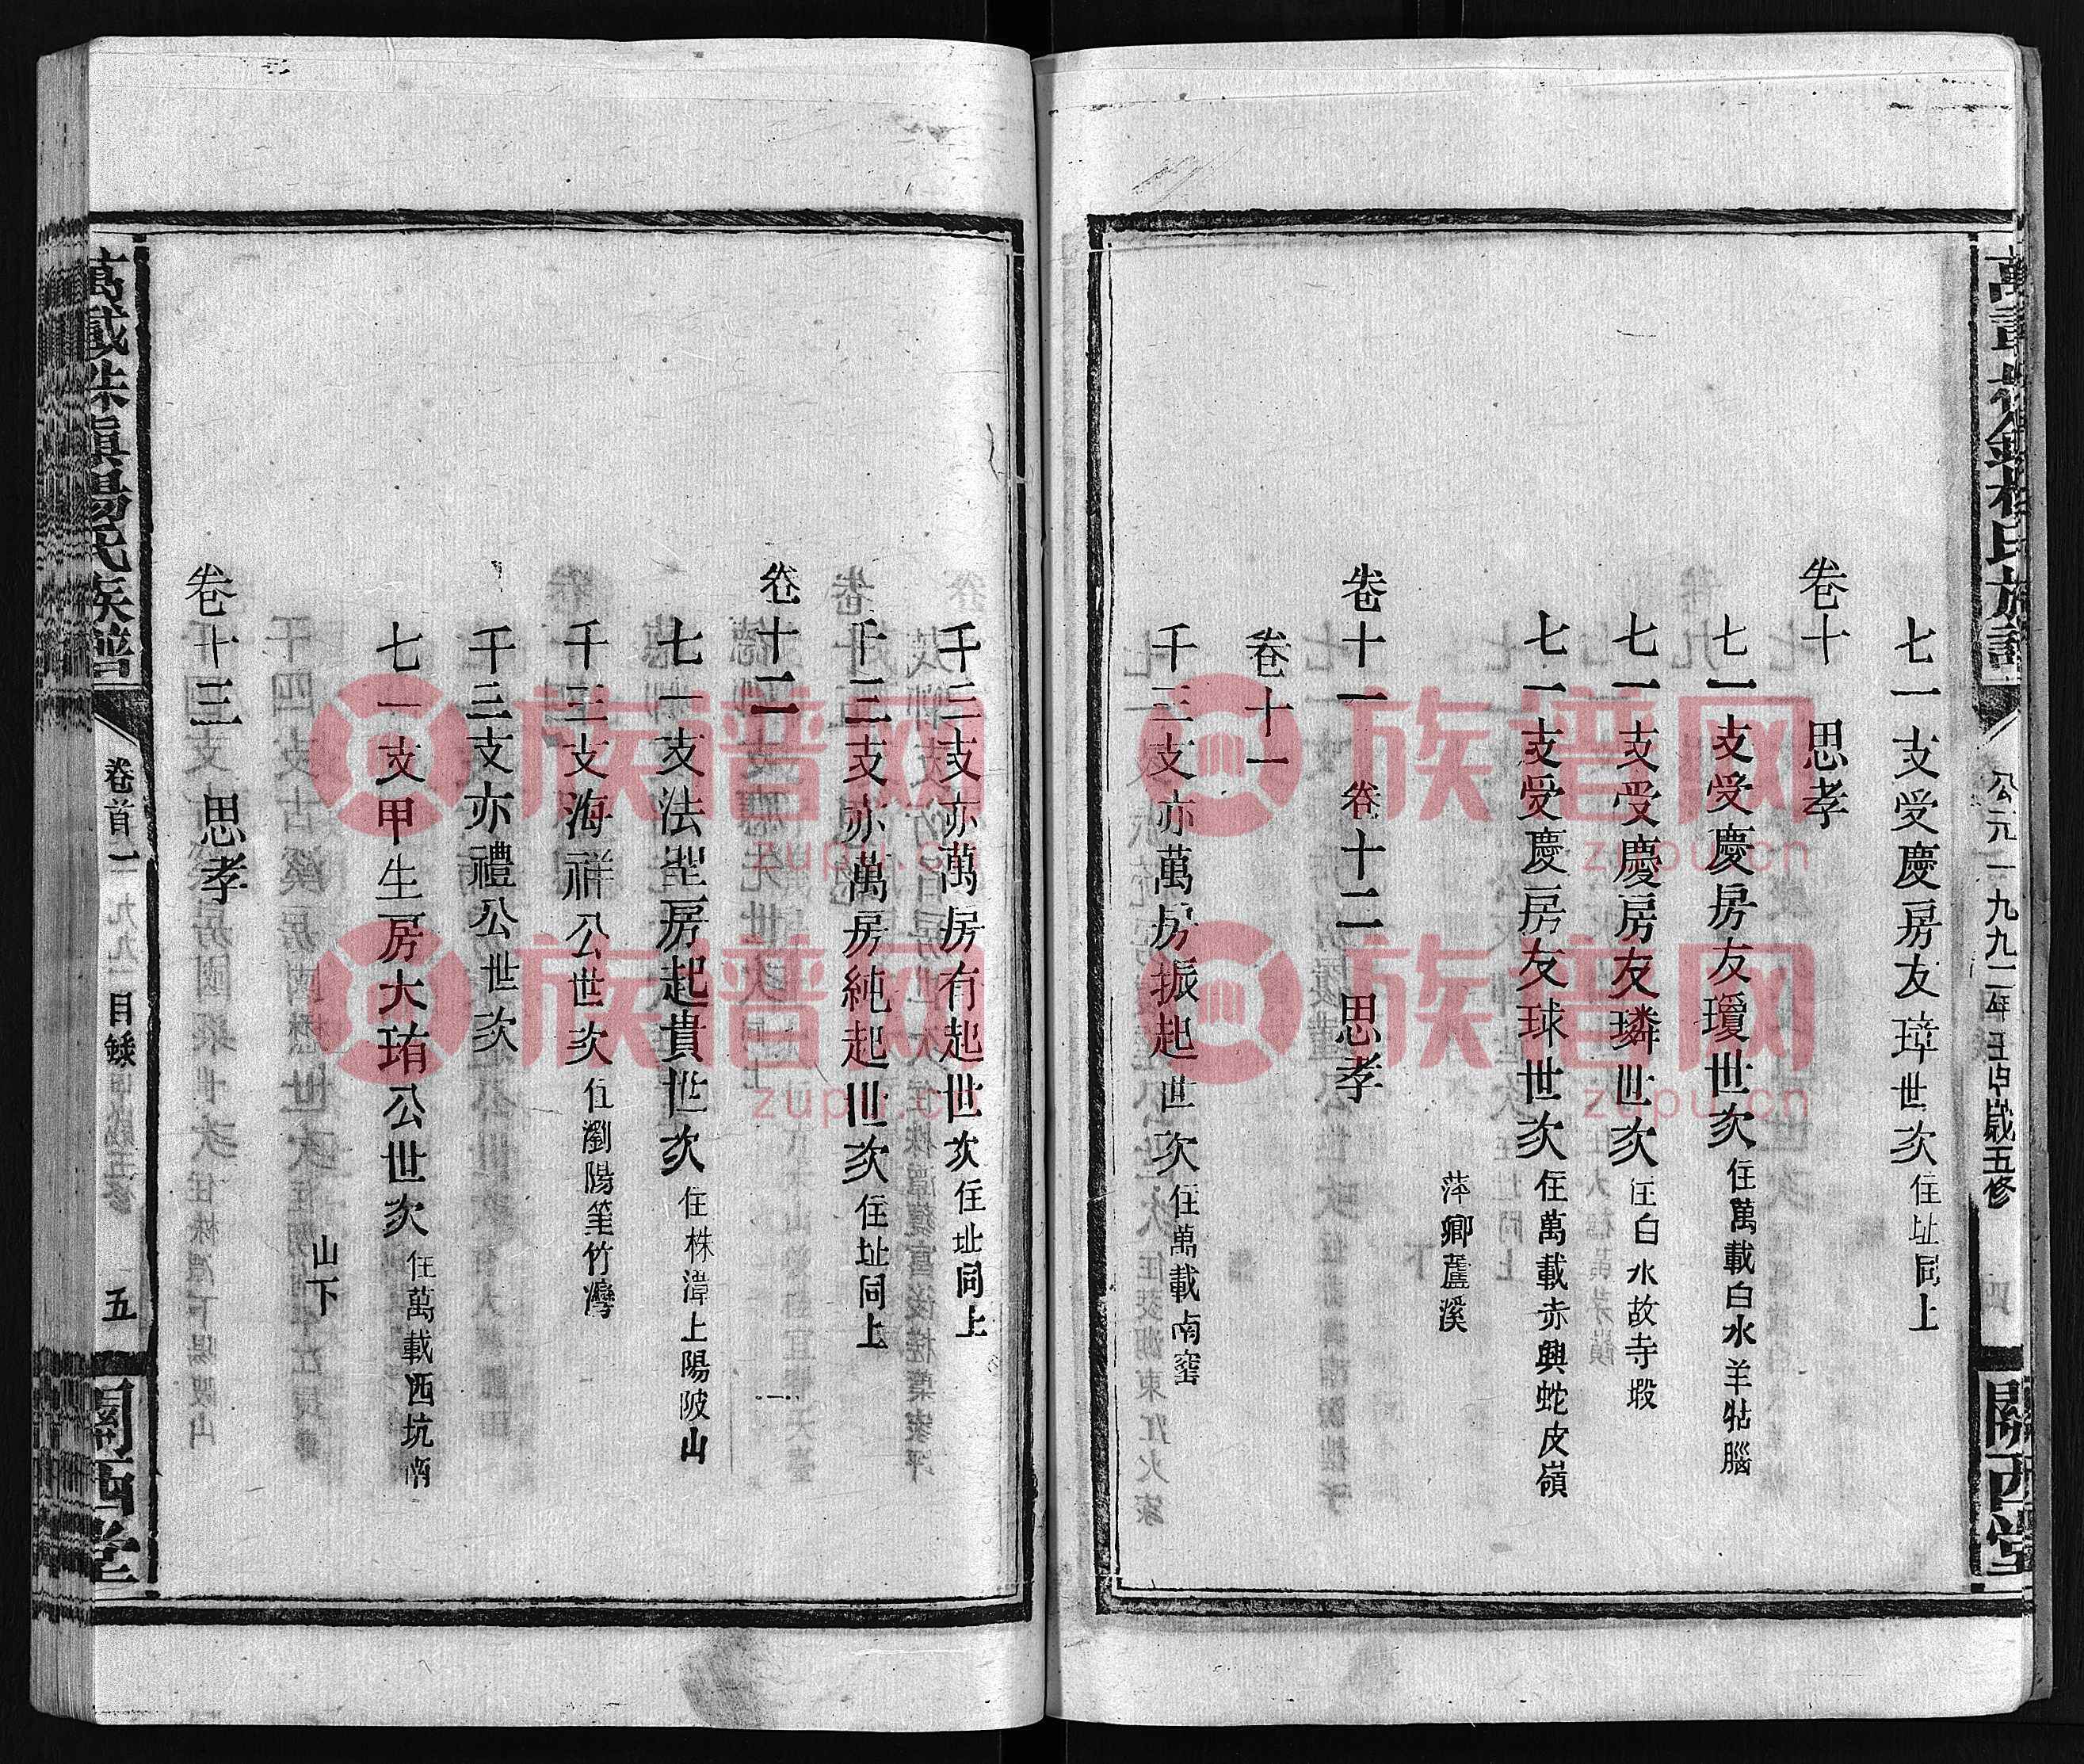 公元一九九二年壬申歲五修
七一支受慶房友璋世次住址同上
卷十　思孝
七一支受慶房友瓊世次住萬載白水羊牯腦
七一支受慶房友璘世次住白水故寺塅
七一支受慶房友球世次住萬載赤興蛇皮嶺
萍鄉蘆溪
卷十一　卷十二　思孝
卷十一
千三支亦萬房振起世次住萬載南窰
千三支亦萬房有起世次住址同上
千三支亦萬房純起世次住址同上
卷十二
七一支法聖房起貴世次住株潭上陽陂山
千三支海祥公世次住瀏陽筀竹灣
千三支亦禮公世次
七一支甲生房大珛公世次住萬載西坑南
山下
卷十三　思孝
萬載株潭楊氏族譜
卷首一九九二目錄
五
關西堂
族譜网
zupu.cn